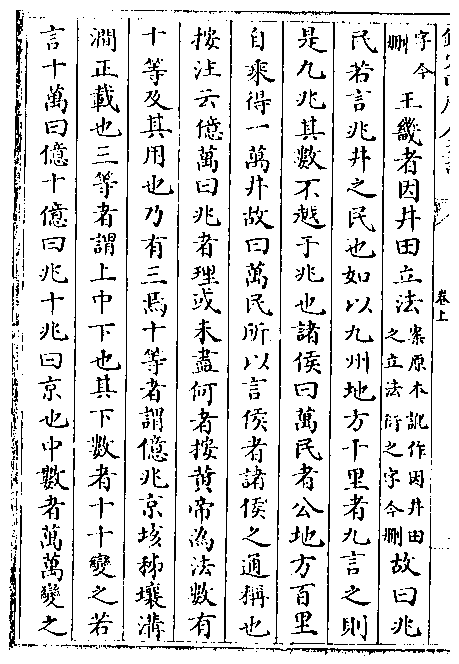 卷上
字今刪王畿者因井田立法案原本訛作因井田之立法衍之字今刪故曰兆
民若言兆井之民也如以九州地方千里者九言之則
是九兆其數不越于兆也諸侯曰萬民者公地方百里
自乘得一萬井故曰萬民所以言侯者諸侯之通稱也
按注云億萬曰兆者理或未盡何者按黄帝為法數有
十等及其用也乃有三焉十等者謂億兆京垓秭壤溝
澗正載也三等者謂上中下也其下數者十十變之若
言十萬曰億十億曰兆十兆曰京也中數者萬萬變之